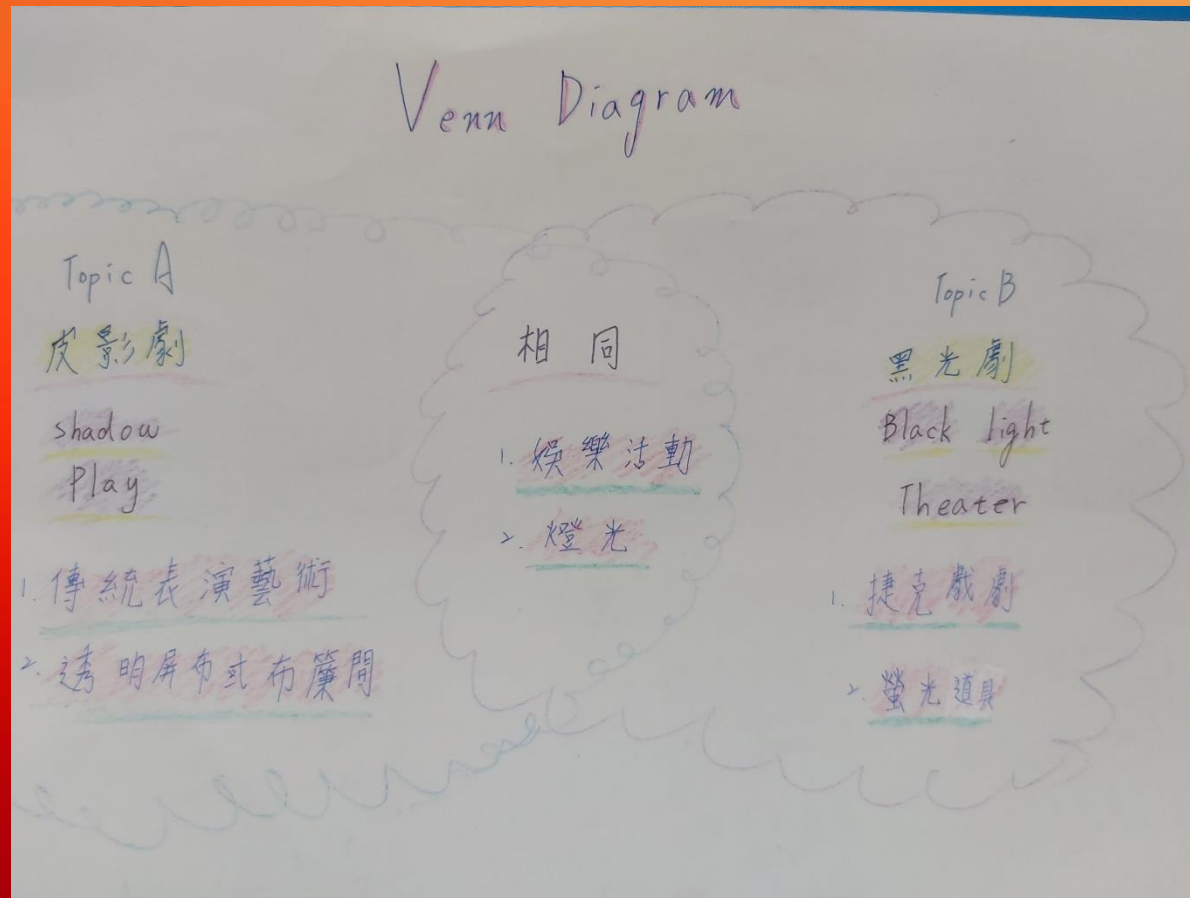 Venn Diagram
Topic A
皮影劇
shadow
Play
1. 傳統表演藝術
2. 透明屏布或布簾間
相同
1. 娛樂活動
2. 燈光
Topic B
黑光劇
Black light
Theater
1. 捷克戲劇
2. 螢光道具